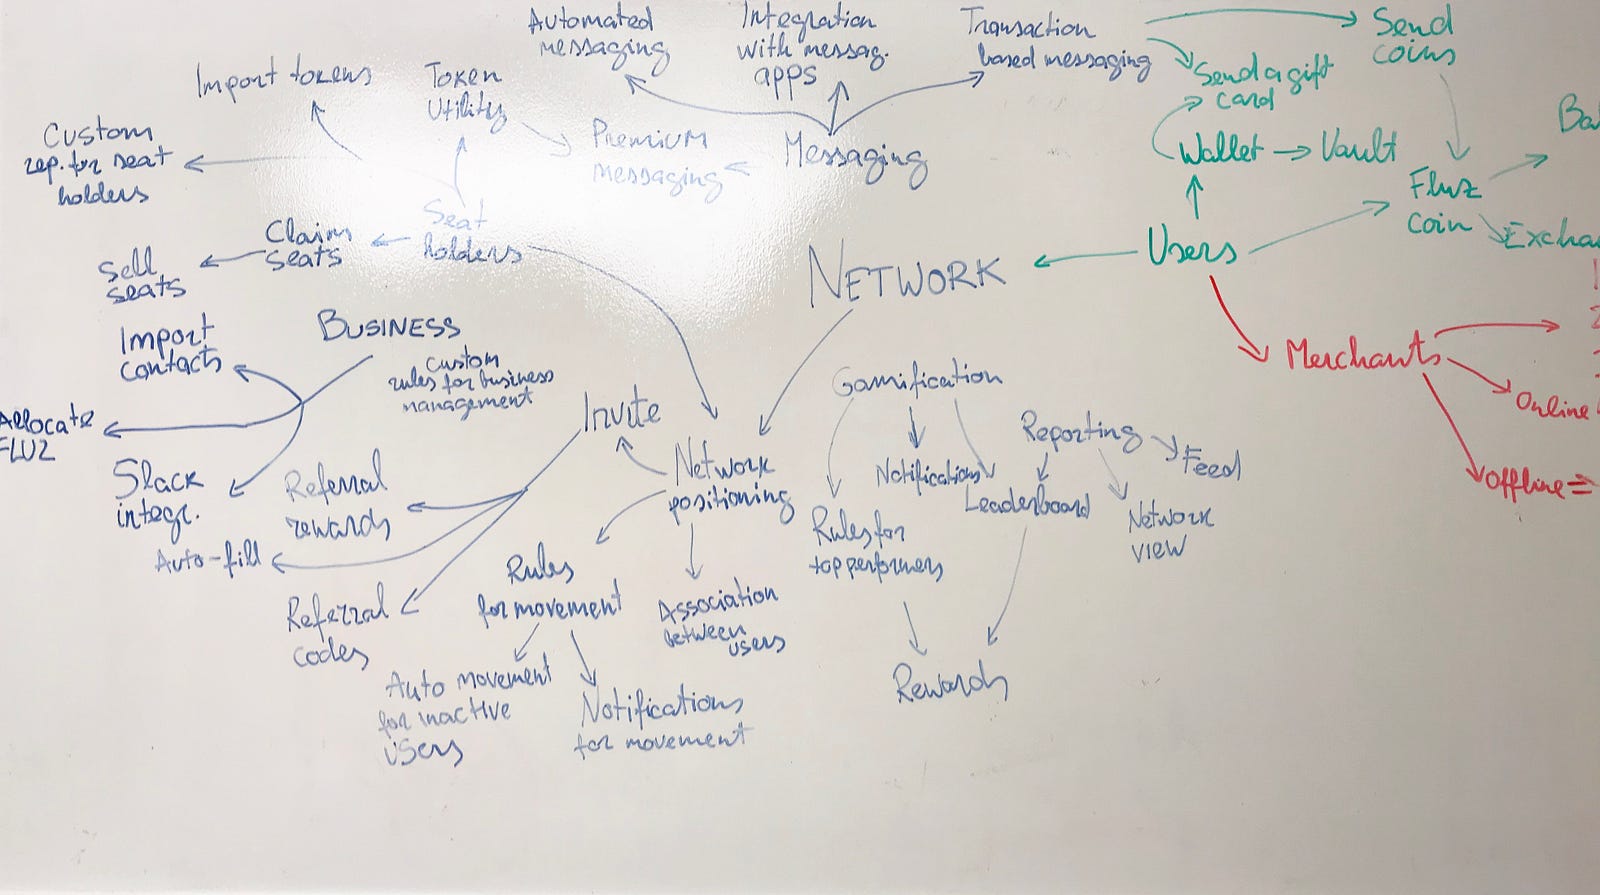 Automated
messaging
Integration
with messag.
apps
Transaction
based messaging
Send
coins
Send a gift
card
Import tokens
Token
Utility
Premium
messaging
Messaging
Wallet → Vault
Custom
rep. for seat
holders
Fluz
coin
Seat
holders
Claim
seats
Sell
seats
NETWORK
Users
Import
contacts
BUSINESS
Custom
rules for business
management
Merchants
Online
Offline =
Gamification
Allocate
FLUZ
Invite
Reporting
Feed
Slack
integr.
Referral
rewards
Network
positioning
Notifications
Leaderboard
Network
view
Rules for
top performers
Auto-fill
Rules
for movement
Association
between
users
Referral
codes
Auto movement
for inactive
users
Notifications
for movement
Rewards